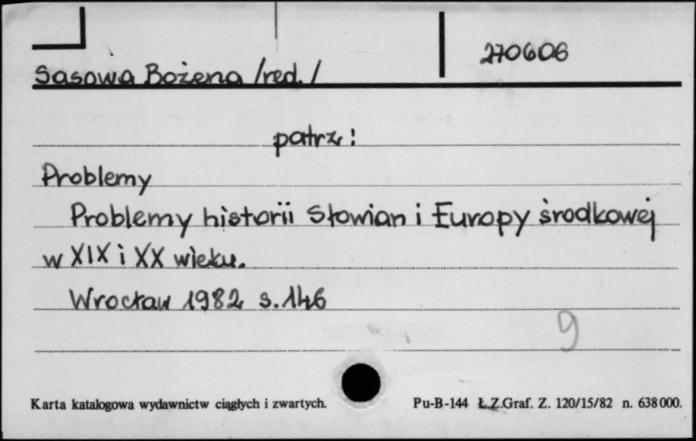 270606
Sasowa Bożena /red./
patrz:
Problemy
Problemy historii Słowian i Europy środkowej
w XIX i XX wieku.
Wrocław 1982 s. 146
9
Karta katalogowa wydawnictw ciągłych i zwartych. Pu-B-144 Ł.Z.Graf. Z. 120/15/82 n. 638000.